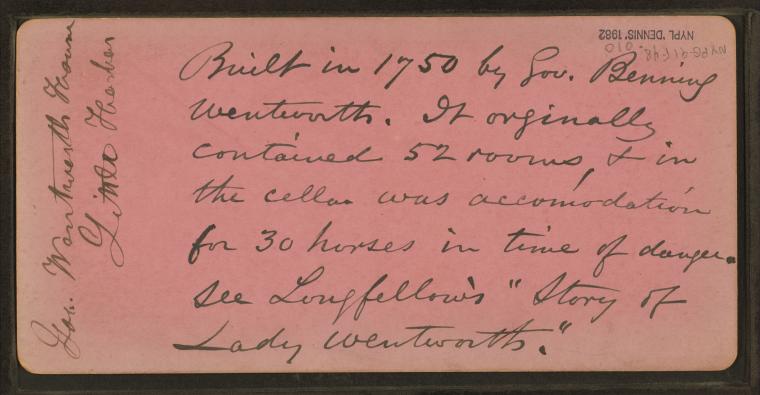 Built in 1750 by Gov. Benning
Wentworth. It orginally
contained 52 rooms, & in
the cellar was accomodation
for 30 horses in time of danger.
See Longfellow's "Story of
Lady Wentworth."
Gov. Wentworth House
Little Harbor
NYPL 'DENNIS' 1982
NYPG-91-F48
010